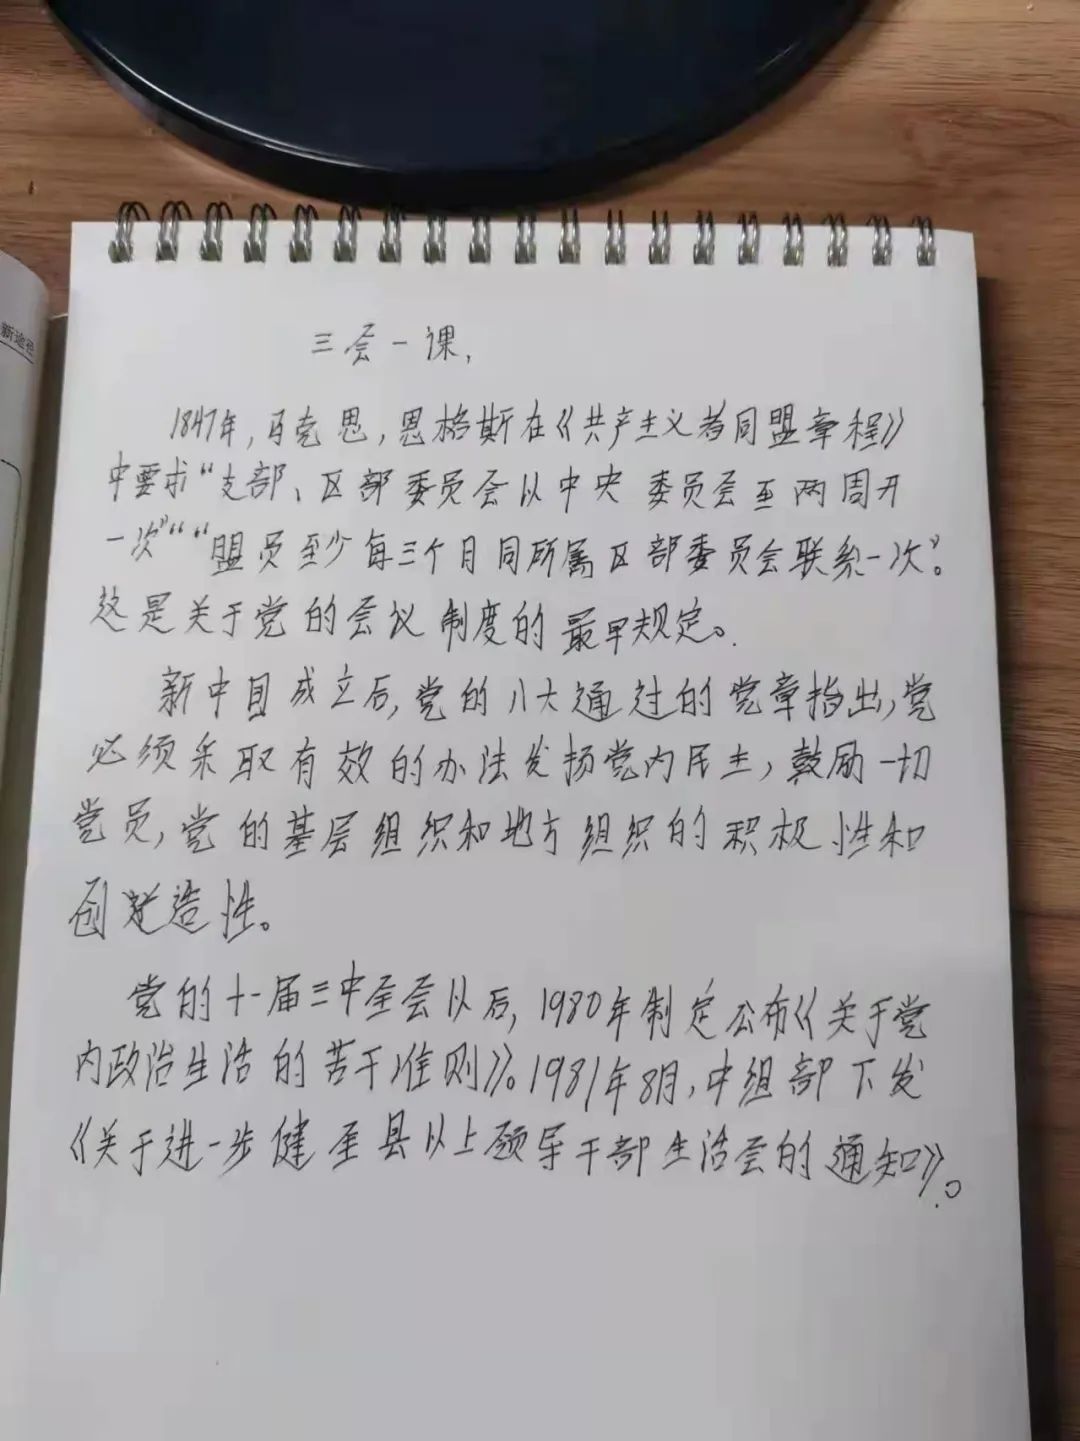 新途径
三会一课,
1847年,马克思,恩格斯在《共产主义者同盟章程》
中要求“支部、区部委员会以中央委员会至两周开
一次”““盟员至少每三个月同所属区部委员会联系一次”。
这是关于党的会议制度的最早规定。
新中国成立后,党的八大通过的党章指出,党
必须采取有效的办法发扬党内民主,鼓励一切
党员,党的基层组织和地方组织的积极性和
创造性。
党的十一届三中全会以后,1980年制定公布《关于党
内政治生活的若干准则》。1981年8月,中组部下发
《关于进一步健全县以上领导干部生活会的通知》。